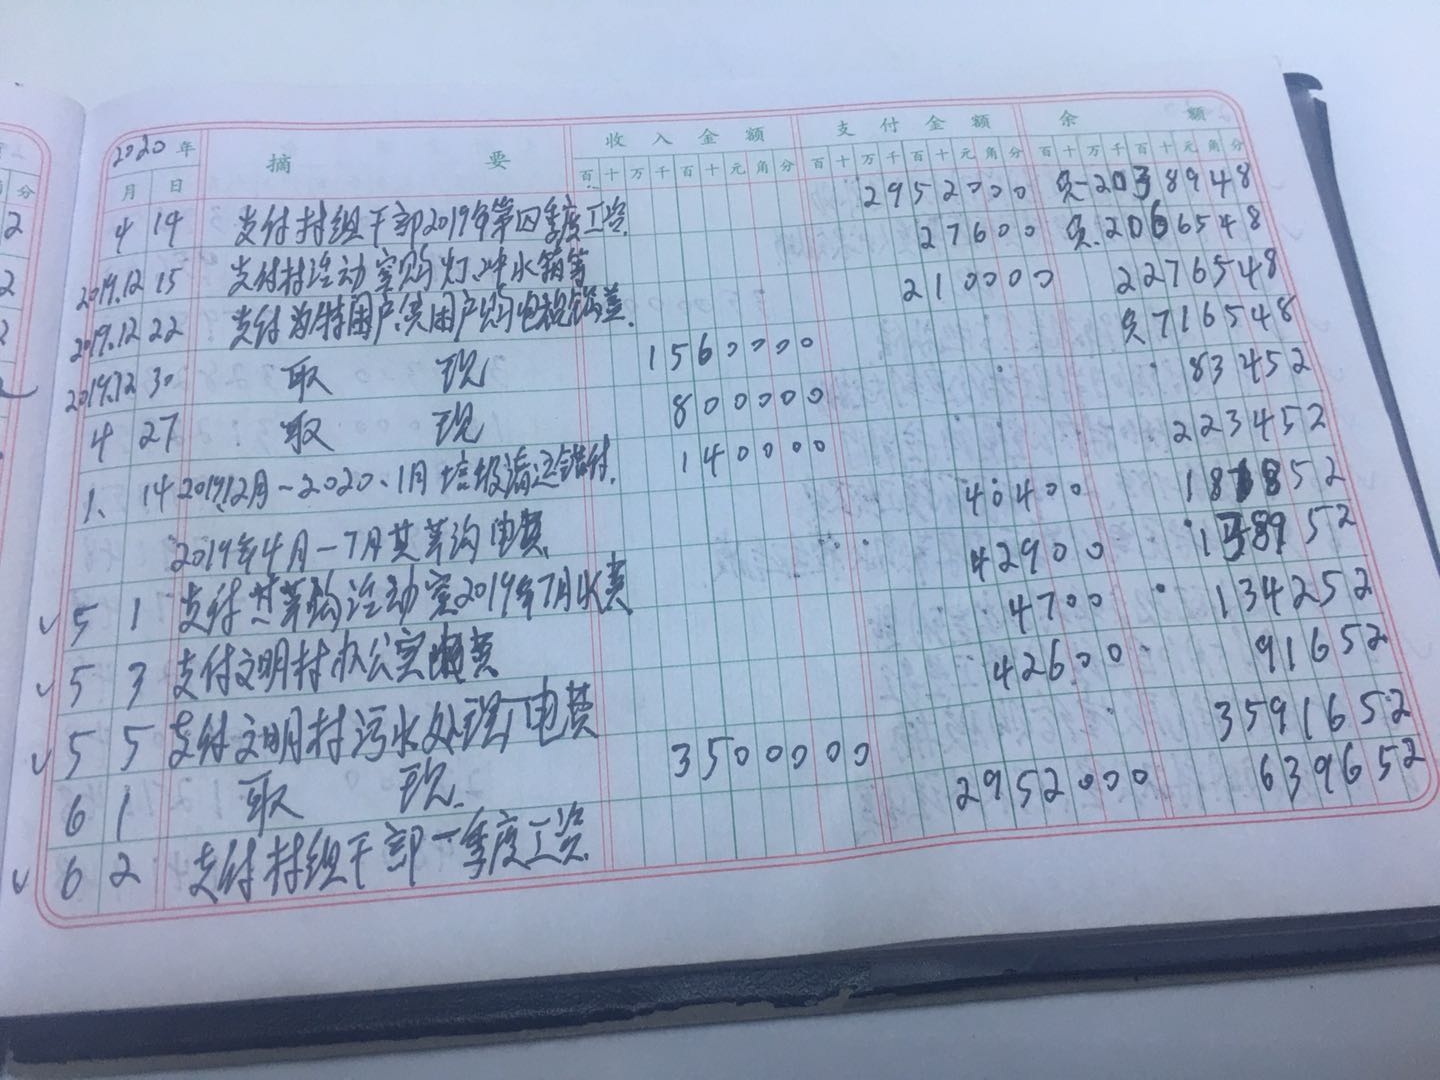 2020年 摘要 收入金额 支付金额 余额
月 日 百十万千百十元角分 百十万千百十元角分 百十万千百十元角分
4 14 支付村组干部2019年第四季度工资. 2952000 负-2038948
2019.12 15 支付村活动室购灯、冲水箱等 27600 负.2066548
2019.12 22 支付为特困户、贫困户购电视 210000 2276548
2019.12 30 取现 1560000 负716548
4 27 取现 800000 83452
1. 14 2019.12月-2020.1月垃圾清运错付. 140000 223452
2019年4月-7月芋沟电费 40400
✓ 5 1 支付芋沟活动室2019年7月水费 42900 152
✓ 5 3 支付文明村办公室电费 4700 134252
✓ 5 5 支付文明村污水处理厂电费 42600 91652
6 1 取现. 3500000 3591652
✓ 6 2 支付村组干部一季度工资. 2952000 639652